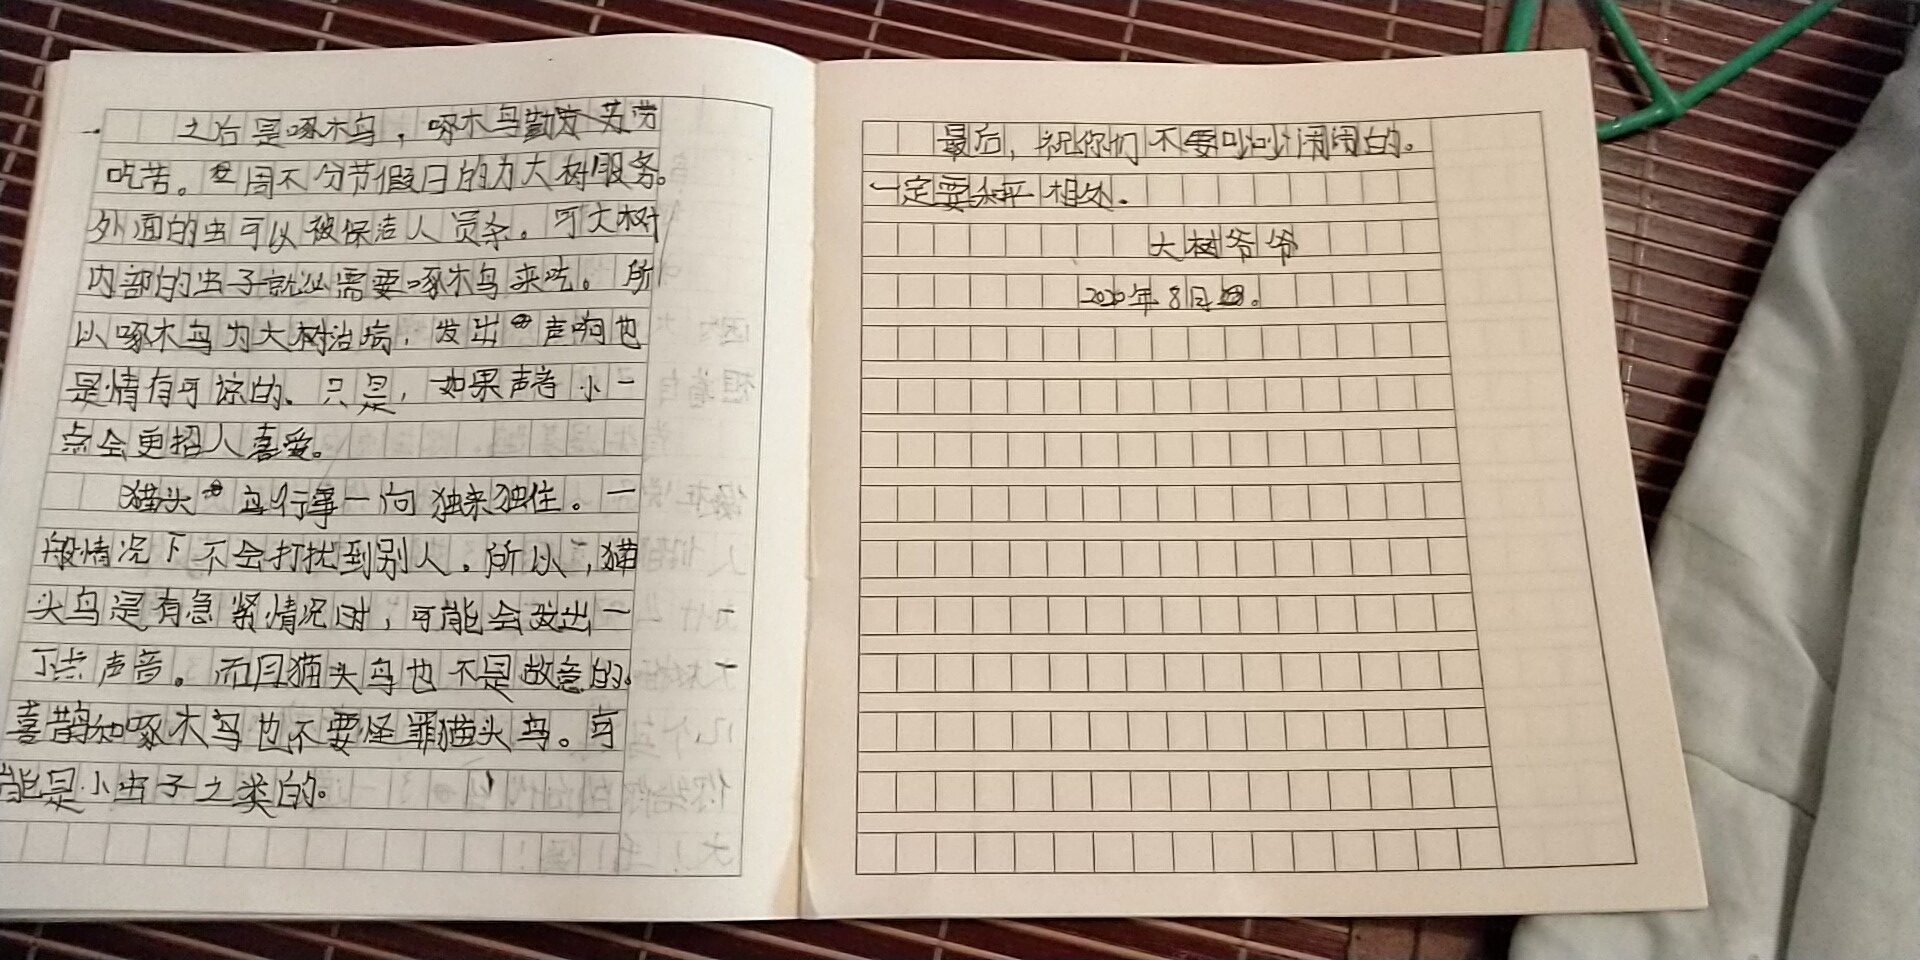 之后是啄木鸟，啄木鸟勤劳
吃苦。周不分节假日的为大树服务。
外面的虫可以被保洁人员杀。可大树
内部的虫子就必需要啄木鸟来吃。所
以啄木鸟为大树治病，发出声响也
是情有可谅的、只是，如果声音小一
点会更招人喜爱。
猫头鸟行事一向独来独住。一
般情况下不会打扰到别人。所以，猫
头鸟是有急紧情况时，可能会发出一
丁点声音。而且猫头鸟也不是故意的。
喜鹊和啄木鸟也不要怪罪猫头鸟。可
能是小虫子之类的。
最后，祝你们不要吵吵闹闹的。
一定要和平相处。
大树爷爷
2020年8日